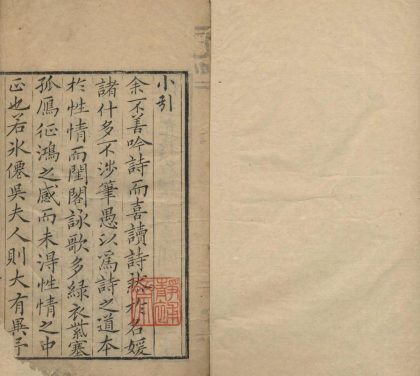 小引
余不善吟詩而喜讀詩然於名媛
諸什多不涉筆愚以爲詩之道本
於性情而閨閣詠歌多綠衣紫塞
孤鴈征鴻之感而未淂性情之中
正也若氷僊吳夫人則大有異乎